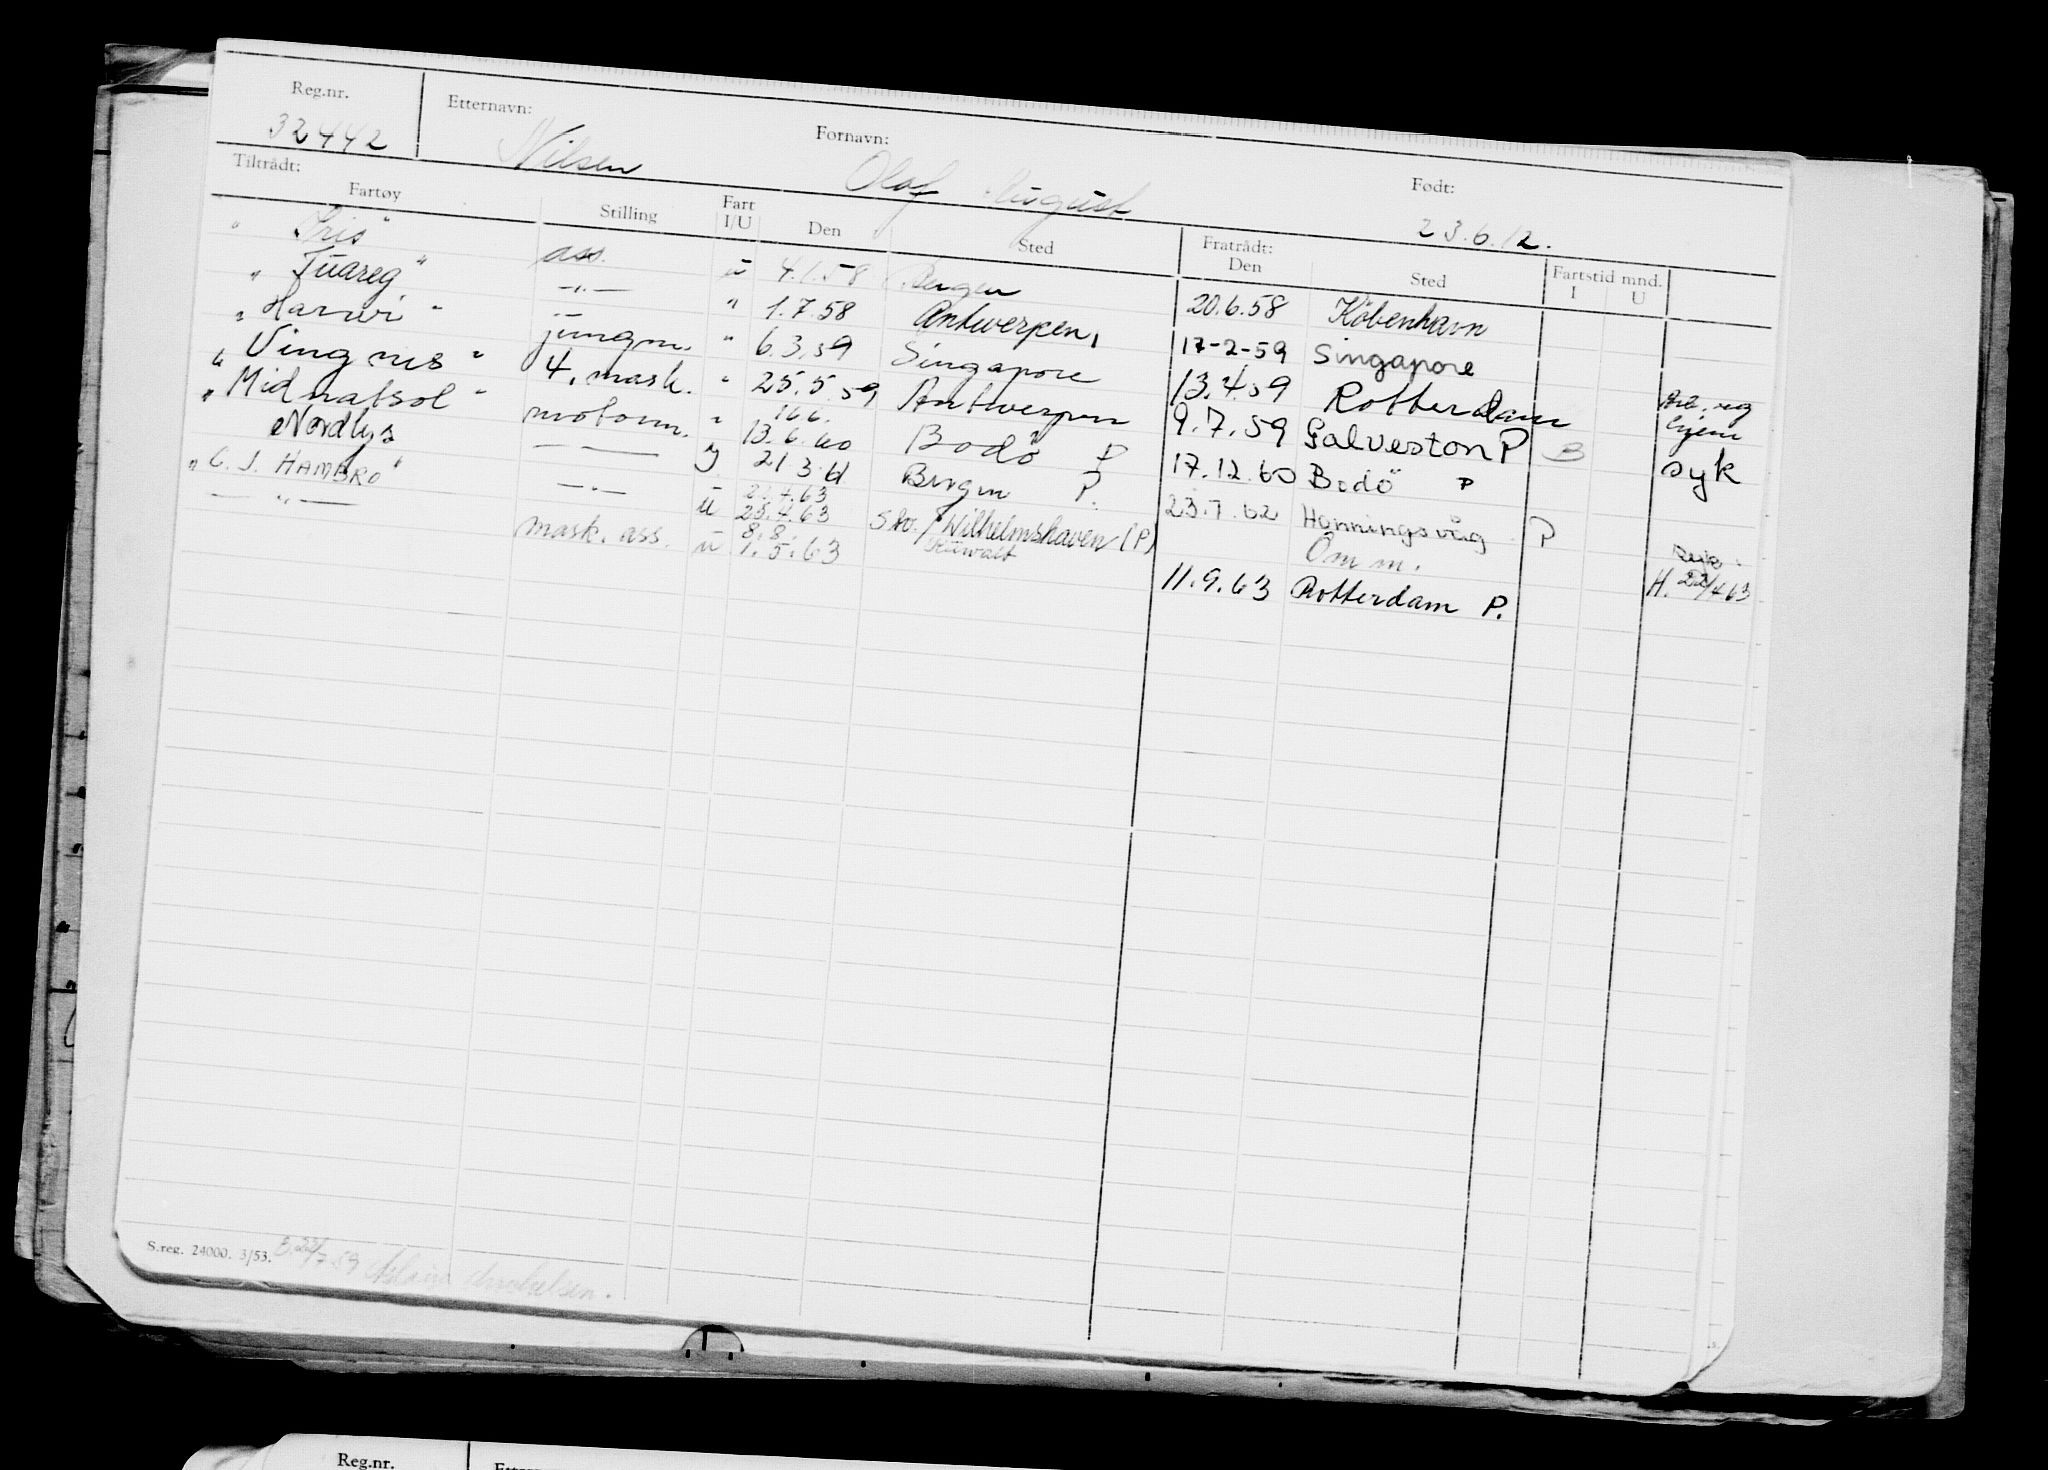 Reg.nr. Etternavn: Fornavn: Født:
32442 Nilsen Olaf August 23.6.12.
Tiltrådt: Fratrådt:
Fartøy Stilling Fart I/U Den Sted Den Sted Fartstid mnd. I U
" Iris " ass. u 4.1.58 Bergen 20.6.58 København
" Tuareg " —"— " 1.7.58 Antwerpen, 17-2-59 Singapore
" " jungm. " 6.3.59 Singapore 13.4.59 Rotterdam
" Vingnes " 4. mask. " 25.5.59 Antwerpen 9.7.59 Galveston P B syk
" Midnatsol " motorm. " 16.6. 13.6.60 Bodö P 17.12.60 Bodö P
Nordlys —"— 21 3 61 Bergen P. 23.7.62 Honningsvåg P
" C. J. HAMBRO " —"— u 25.4.63 Wilhelmshaven (P) Om m. H. 22/4 63
—"— mask. ass. u 8.8. 1.5.63 11.9.63 Rotterdam P.
S.reg. 24000. 3/53.
Reg.nr.